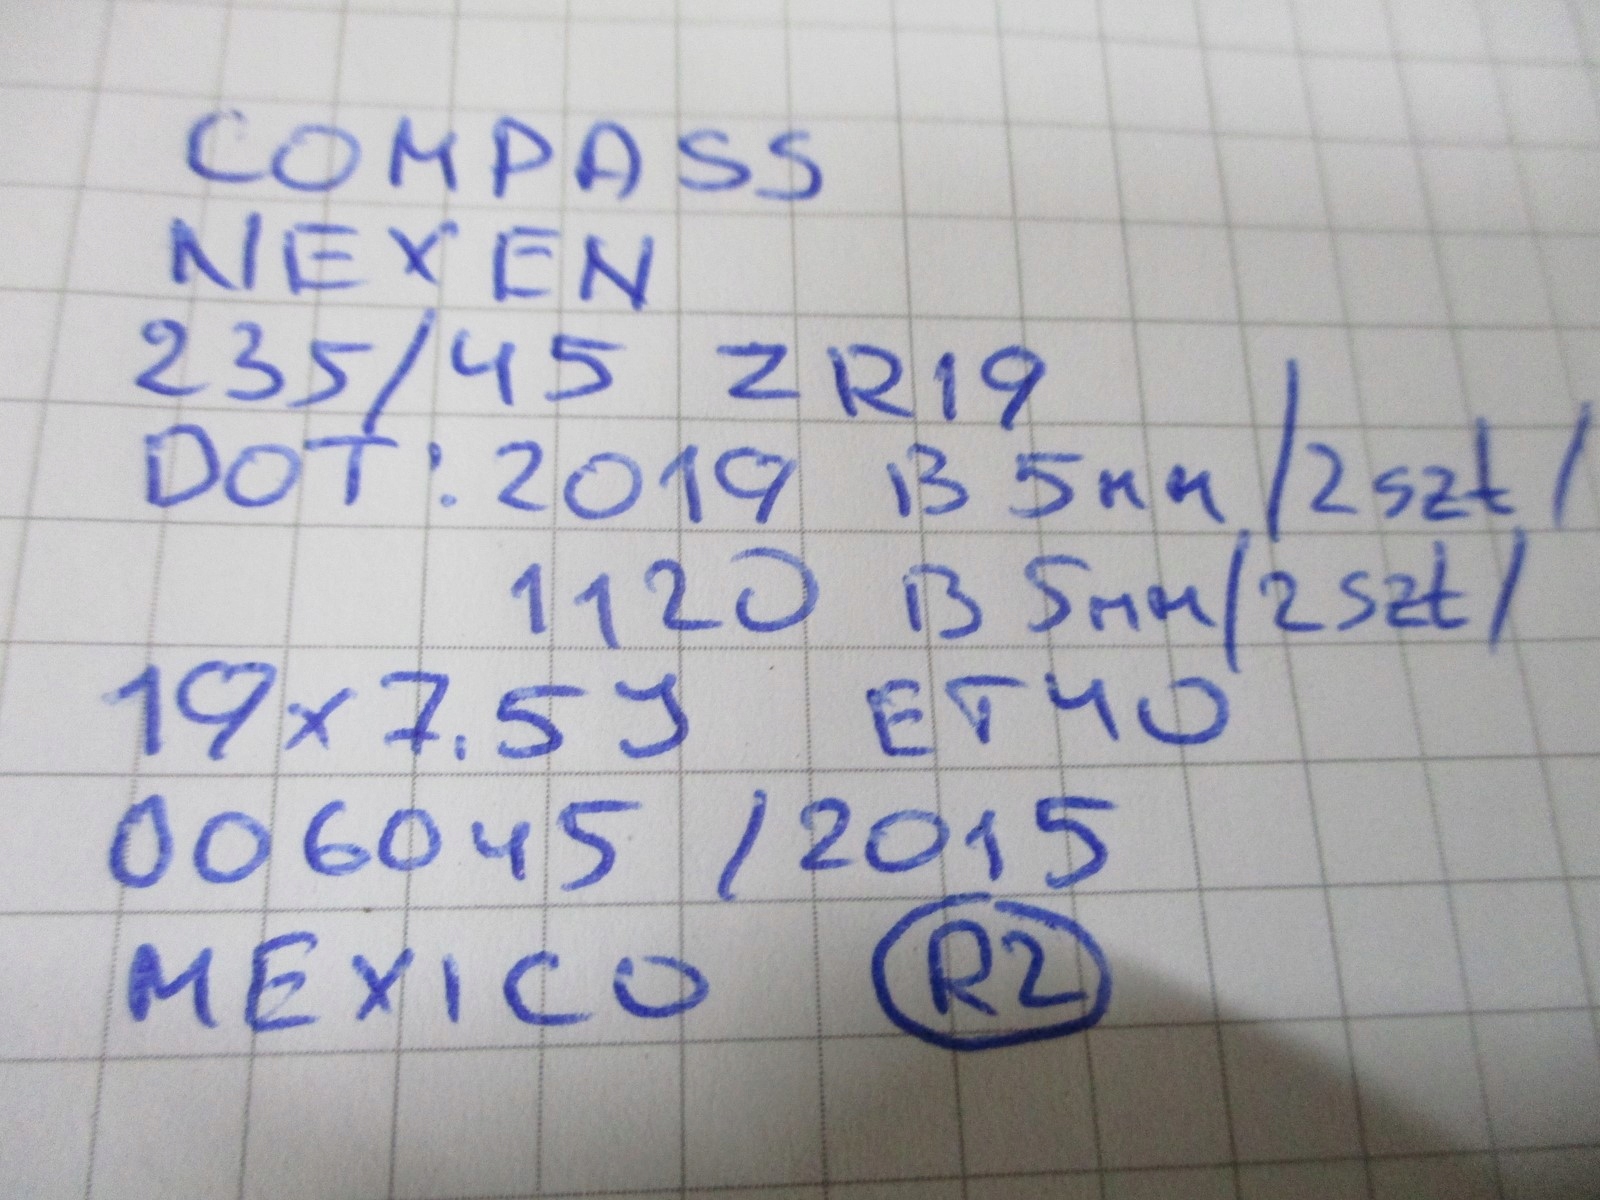 COMPASS
NEXEN
235/45 ZR19
DOT: 2019 B 5mm /2szt/
1120 B 5mm /2szt/
19x7.5J ET40
006045 /2015
MEXICO R2